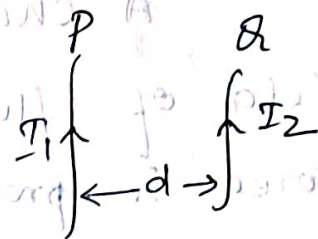 P Q
I₁ I₂
d